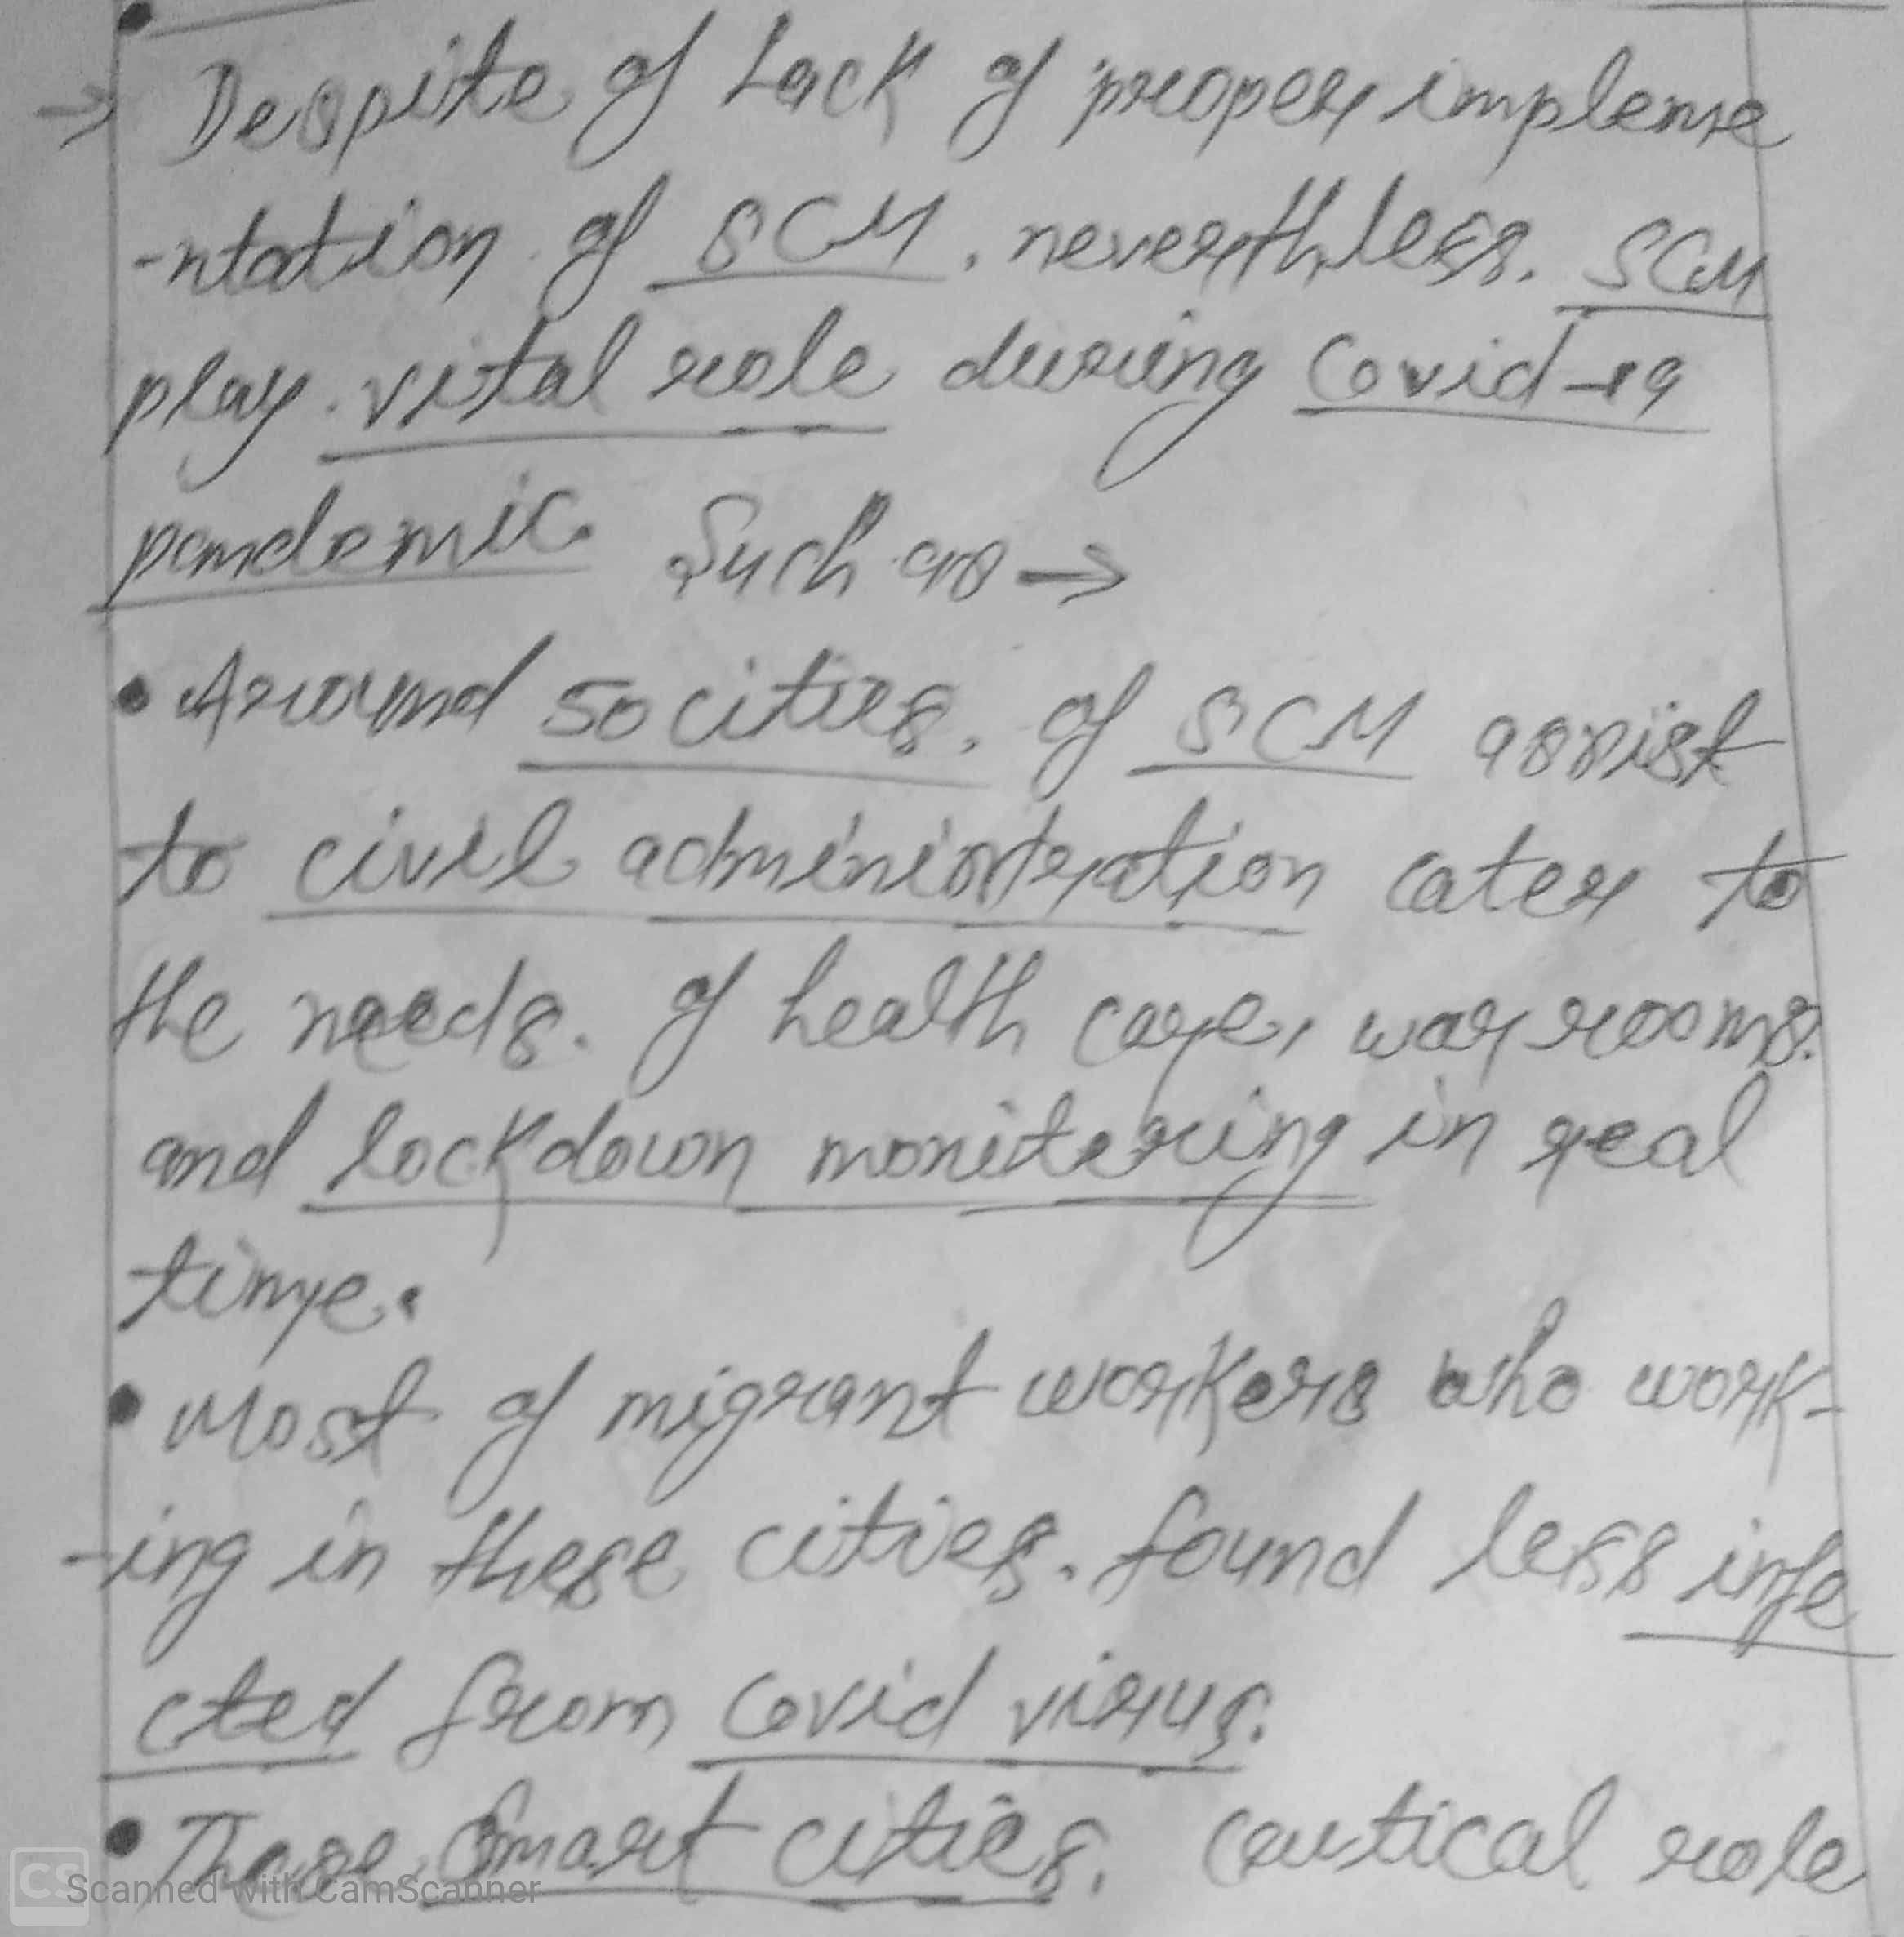 → Despite of Lack of proper impleme
-ntation of SCM, neverthless. SCM
play vital role during Covid-19
pandemic. Such as →
• Around 50 cities, of SCM assist
to civil administration cater to
the needs. of health care, war rooms.
and lockdown monitering in real
time.
• Most of migrant workers who work-
-ing in these cities. found less infe
cted from Covid virus.
• These Smart cities. critical role
CS Scanned with CamScanner